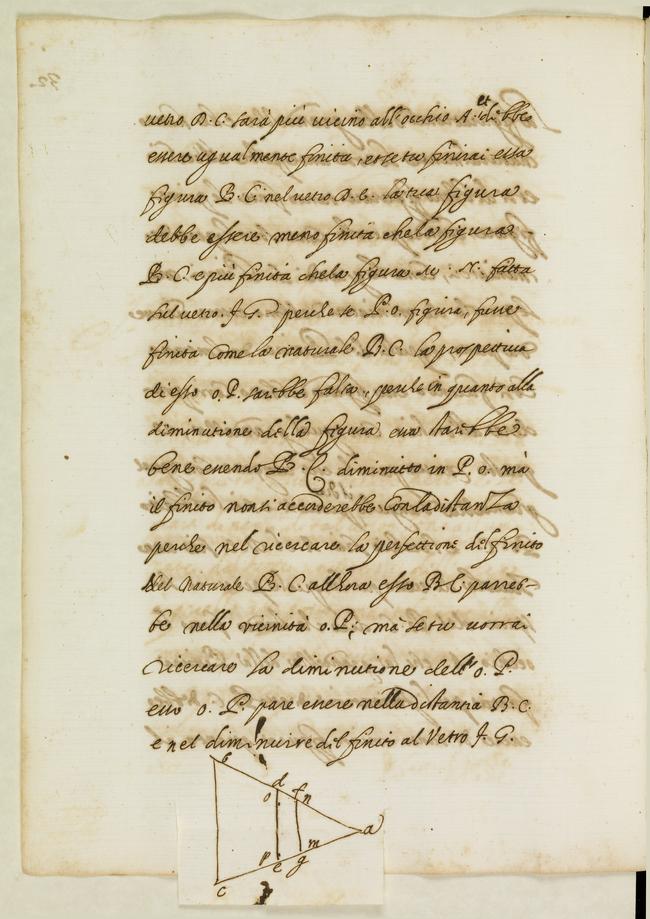 vetro D. C. sarà più vicino all'occhio A. et debbe
essere ugualmente finita, et se tu finirai essa
figura B. C nel vetro D. E. la tua figura
debbe essere meno finita che la figura
B. C. e più finita che la figura M. N. fatta
sul vetro. F. G. perche se P. o. figura, fusse
finita Come la naturale B. C. la prospettiva
di esso o. P. sarebbe falsa, perche in quanto alla
diminutione della figura essa starebbe
bene essendo B. C. diminuito in P. o. mà
il finito non si accorderebbe Con la distanza
perche nel ricercare la perfettione del finito
del Naturale B. C. all'hora esso B C parreb-
be nella vicinità o. P; mà se tu vorrai
ricercare la diminutione dell' o. P.
esso o. P. pare essere nella distantia B. C.
e nel diminuire del finito al Vetro F. G.
b
d
o f n
a
p e g m
c